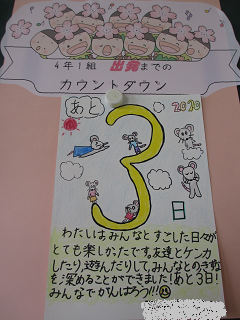 4年1組 出発までの
カウントダウン
あと
2020
3
日
わたしは、みんなとすごした日々が
とても楽しかたです。友達とケンカ
したり、遊んだりして、みんなとのきずな
を深めることができました!あと3日!
みんなでがんばろう!!!